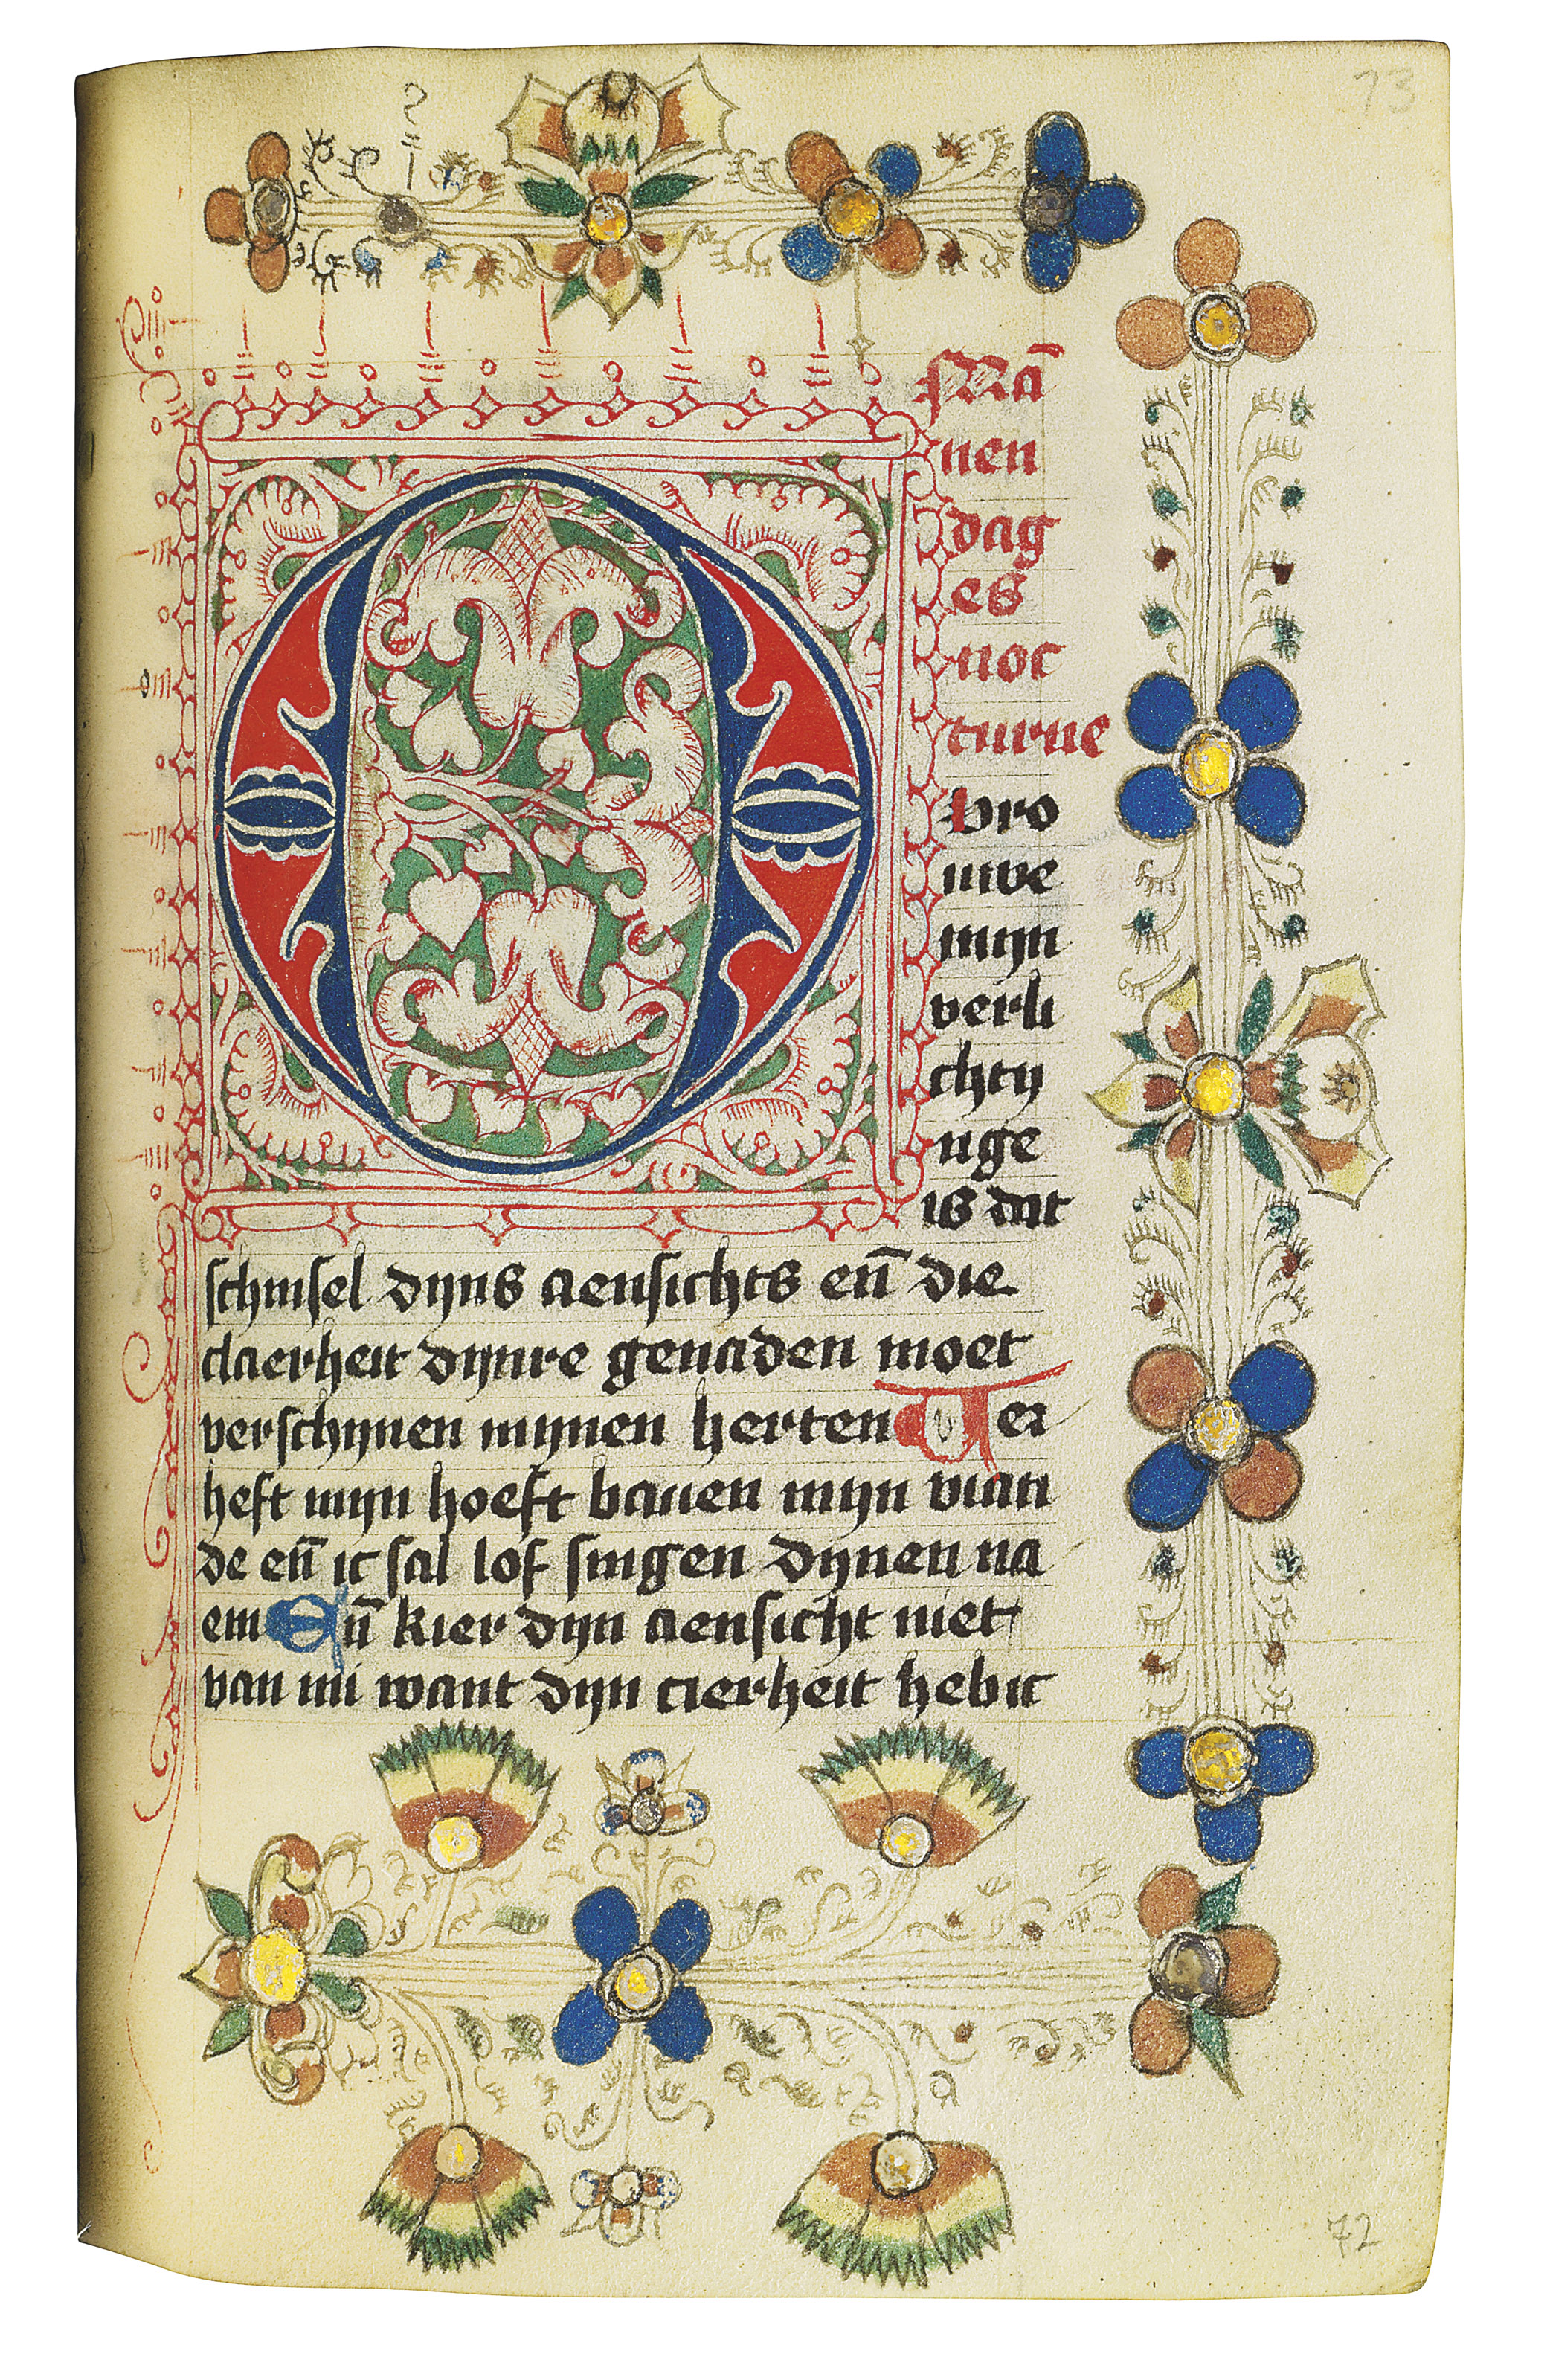 73
sMā
nen
dag
es
noc
turne
O vro
uwe
mijn
verli
chtij
nge
is dat
schinsel dijns aensichts eñ die
claerheit dijnre genaden moet
verschijnen mijnen herten Ver
heft mijn hoeft bauen mijn vian
de eñ ic sal lof singen dijnen na
em Eñ kier dijn aensicht niet
van mi want dijn cierheit heb ic
72